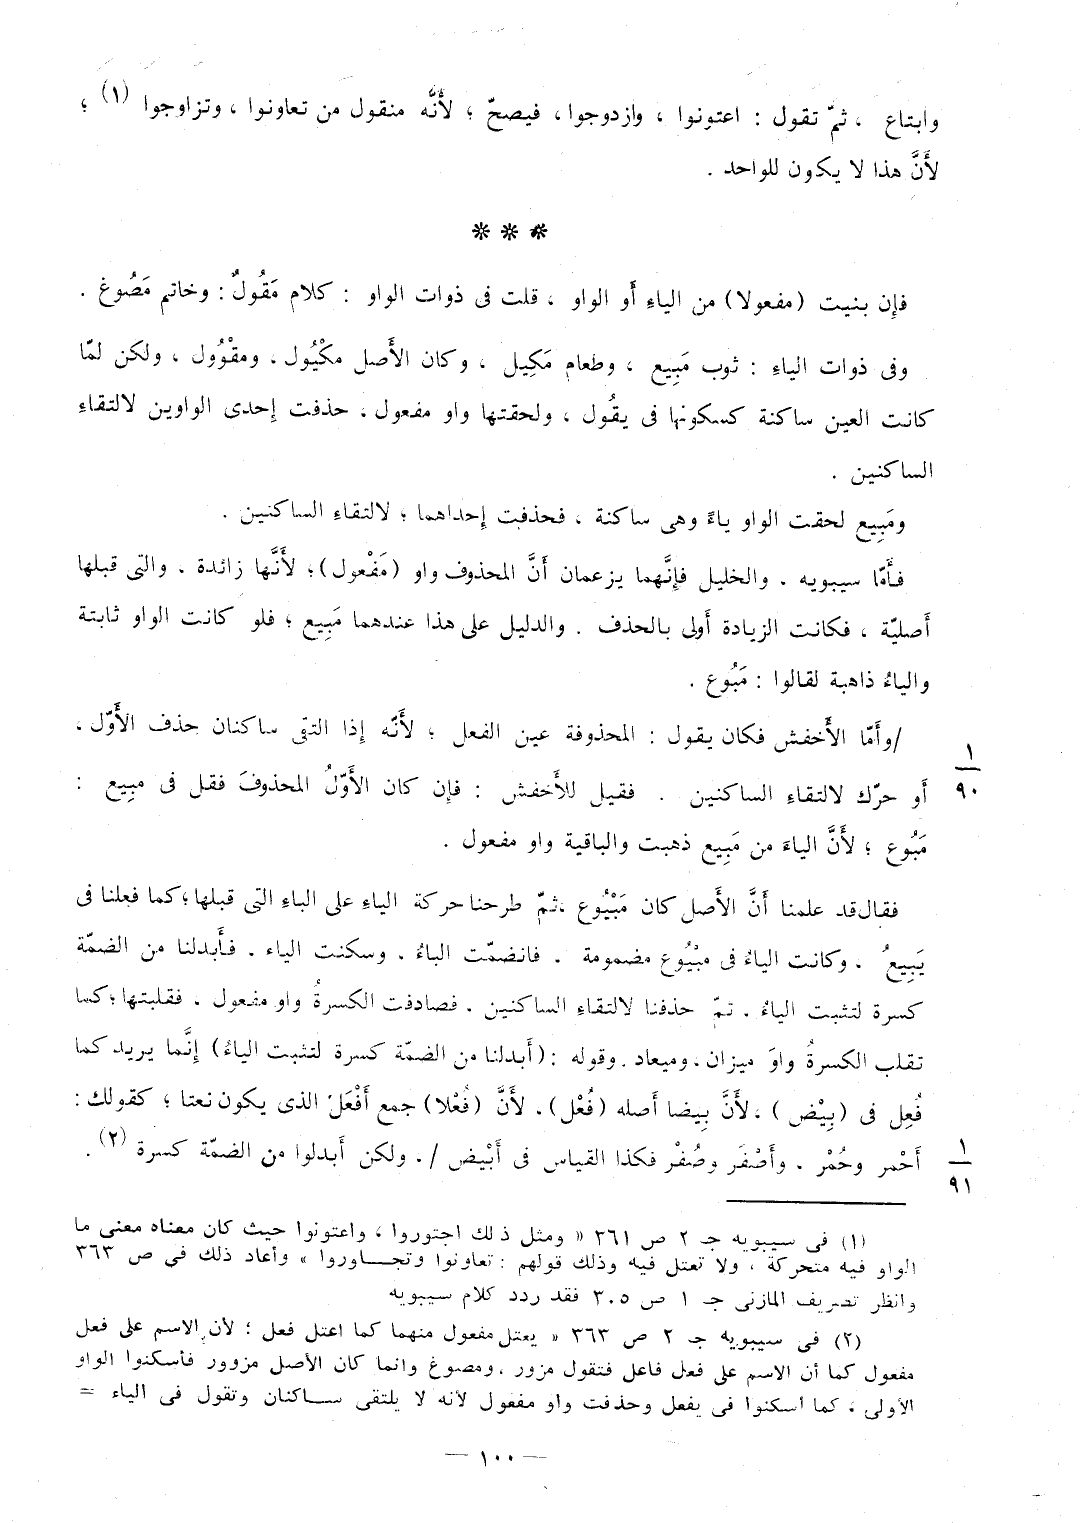 وابتاع ، ثمّ تقول : اعتونوا ، وازدوجوا، فيصحّ ؛ لأَنَّه منقول من تعاونوا ، وتزاوجوا (١) ؛
لأَنَّ هذا لا يكون للواحد .
* * *
فإِن بنيت (مفعولا) من الياءِ أَو الواو ، قلت فى ذوات الواو : كلام مَقُولٌ : وخاتم مَصُوغ .
وفى ذوات الياءِ : ثوب مَبِيع ، وطعام مَكِيل ، وكان الأَصل مكْيُول ، ومقْوُول ، ولكن لمّا
كانت العين ساكنة كسكونها فى يقُول ، ولحقتها واو مفعول ، حذفت إِحدى الواوين لالتقاءِ
الساكنين .
ومَبِيع لحقت الواو ياءً وهى ساكنة ، فحذفت إِحداهما ؛ لالتقاءِ الساكنين .
فأَمّا سيبويه . والخليل فإِنَّهما يزعمان أَنَّ المحذوف واو (مَفْعول)؛ لأَنَّها زائدة . والتى قبلها
أَصليّة ، فكانت الزيادة أَولى بالحذف . والدليل على هذا عندهما مَبِيع ؛ فلو كانت الواو ثابتة
والياءُ ذاهبة لقالوا : مَبُوع .
/وأَمّا الأَخفش فكان يقول : المحذوفة عين الفعل ؛ لأَنّه إِذا التقى ساكنان حذف الأَوّل ،
١
٩٠
أَو حرّك لالتقاءِ الساكنين . فقيل للأَخفش : فإِن كان الأَوّلُ المحذوفَ فقل فى مبِيع :
مَبُوع ؛ لأَنَّ الياءَ من مَبِيع ذهبت والباقية واو مفعول .
فقال قد علمنا أَنَّ الأَصل كان مَبْيُوع ،ثمّ طرحنا حركة الياءِ على الباءِ التى قبلها؛كما فعلنا فى
يَبِيعُ . وكانت الياءُ فى مبْيُوع مضمومة . فانضمّت الباءُ . وسكنت الياء . فأَبدلنا من الضمّة
كسرة لتثبت الياءُ . ثمّ حذفنا لالتقاءِ الساكنين . فصادفت الكسرةُ واو مفعول . فقلبتها؛كما
تقلب الكسرةُ واوَ ميزان ، وميعاد . وقوله :(أَبدلنا من الضمّة كسرة لتثبت الياءُ) إِنَّما يريد كما
فُعِل فى (بِيْض ) ، لأَنَّ بِيضا أَصله (فُعْل). لأَنَّ (فُعْلا) جمع أَفْعَلَ الذى يكون نعتا ؛ كقولك :
أَحْمر وحُمْر . وأَصْفَر وصُفْر فكذا القياس فى أَبْيض / . ولكن أَبدلوا من الضمّة كسرة (٢) .
١
٩١
(١) فى سيبويه جـ ٢ ص ٣٦١ « ومثل ذلك اجتوروا ، واعتونوا حيث كان معناه معنى ما
الواو فيه متحركة ، ولا تعتل فيه وذلك قولهم : تعاونوا وتجــاوروا » وأعاد ذلك في ص ٣٦٣
وانظر تصريف المازنى جـ ١ ص ٣٠٥ فقد ردد كلام سيبويه
(٢) فى سيبويه جـ ٢ ص ٣٦٣ « يعتل مفعول منهما كما اعتل فعل ؛ لأن الاسم على فعل
مفعول كما أن الاسم على فعل فاعل فتقول مزور ، ومصوغ وانما كان الأصل مزوور فأسكنوا الواو
الأولى ، كما أسكنوا فى يفعل وحذفت واو مفعول لأنه لا يلتقى ســاكنان وتقول فى الياء =
— ١٠٠ —